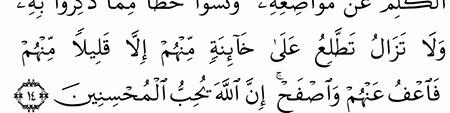 الْكَلِمَ عَن مَّوَاضِعِهِۦ وَنَسُوا۟ حَظًّا مِّمَّا ذُكِّرُوا۟ بِهِۦ
وَلَا تَزَالُ تَطَّلِعُ عَلَىٰ خَآئِنَةٍ مِّنْهُمْ إِلَّا قَلِيلًا مِّنْهُمْ
فَٱعْفُ عَنْهُمْ وَٱصْفَحْ ۚ إِنَّ ٱللَّهَ يُحِبُّ ٱلْمُحْسِنِينَ ١٤